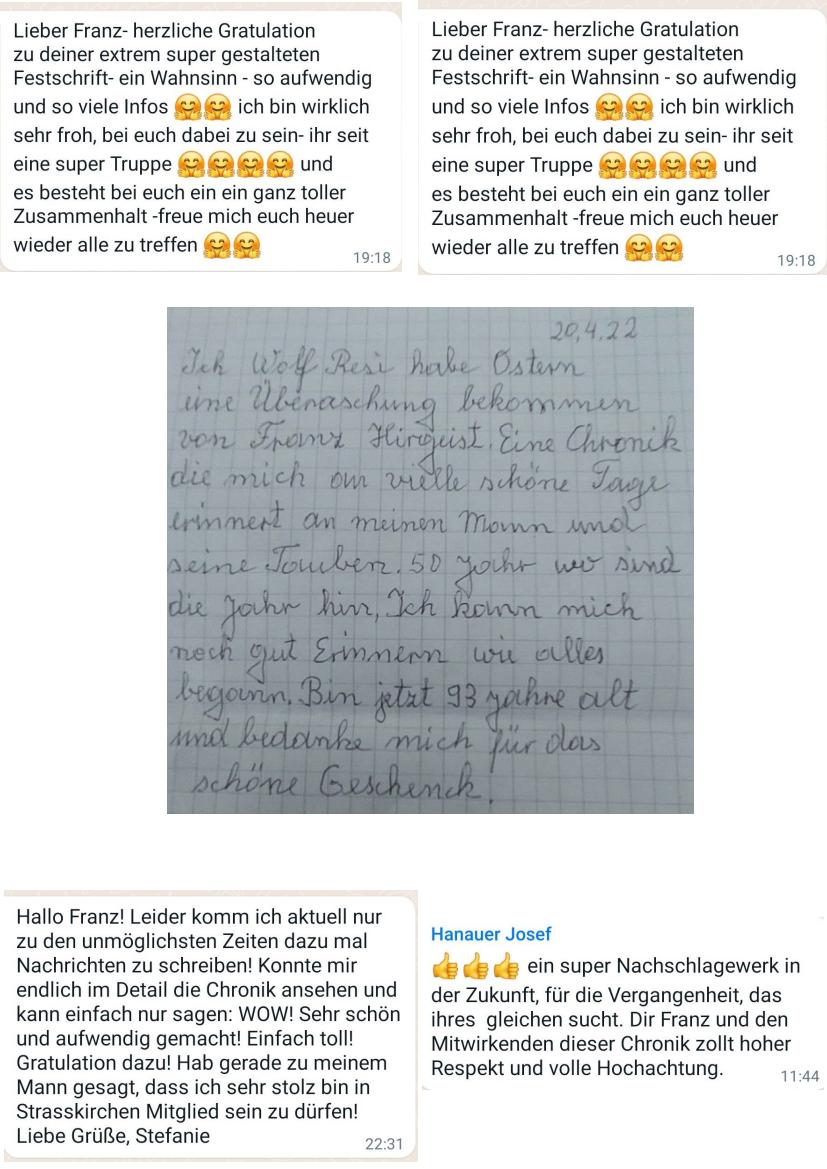 Lieber Franz- herzliche Gratulation
zu deiner extrem super gestalteten
Festschrift- ein Wahnsinn - so aufwendig
und so viele Infos 🤗🤗 ich bin wirklich
sehr froh, bei euch dabei zu sein- ihr seit
eine super Truppe 🤗🤗🤗🤗 und
es besteht bei euch ein ein ganz toller
Zusammenhalt -freue mich euch heuer
wieder alle zu treffen 🤗🤗
19:18
Lieber Franz- herzliche Gratulation
zu deiner extrem super gestalteten
Festschrift- ein Wahnsinn - so aufwendig
und so viele Infos 🤗🤗 ich bin wirklich
sehr froh, bei euch dabei zu sein- ihr seit
eine super Truppe 🤗🤗🤗🤗 und
es besteht bei euch ein ein ganz toller
Zusammenhalt -freue mich euch heuer
wieder alle zu treffen 🤗🤗
19:18
20.4.22
Ich Wolf Resi habe Ostern
eine Überaschung bekommen
von Franz Hirgeist. Eine Chronik
die mich an vielle schöne Tage
erinnert an meinen Mann und
seine Tauben. 50 Jahr wo sind
die Jahr hin, Ich kann mich
noch gut Erinnern wie alles
begann. Bin jetzt 93 jahre alt
und bedanke mich für das
schöne Geschenck.
Hallo Franz! Leider komm ich aktuell nur
zu den unmöglichsten Zeiten dazu mal
Nachrichten zu schreiben! Konnte mir
endlich im Detail die Chronik ansehen und
kann einfach nur sagen: WOW! Sehr schön
und aufwendig gemacht! Einfach toll!
Gratulation dazu! Hab gerade zu meinem
Mann gesagt, dass ich sehr stolz bin in
Strasskirchen Mitglied sein zu dürfen!
Liebe Grüße, Stefanie
22:31
Hanauer Josef
👍👍👍 ein super Nachschlagewerk in
der Zukunft, für die Vergangenheit, das
ihres  gleichen sucht. Dir Franz und den
Mitwirkenden dieser Chronik zollt hoher
Respekt und volle Hochachtung.
11:44